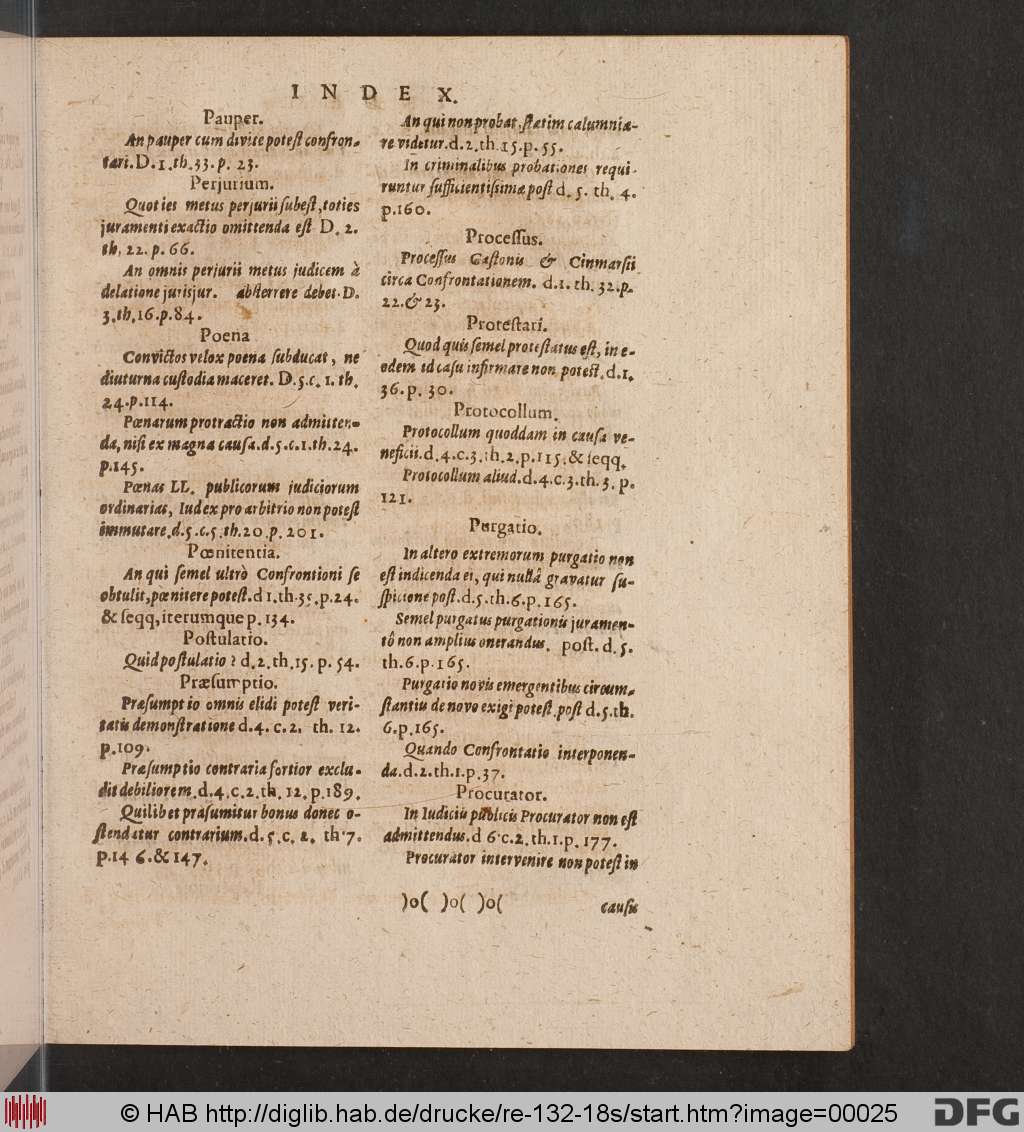 INDEX.
Pauper.
An pauper cum divite potest confron-
tari. D. 1. th. 33. p. 23.
Perjurium.
Quoties metus perjurii subest, toties
juramenti exactio omittenda est D. 2.
th. 22. p. 66.
An omnis perjurii metus judicem à
delatione jurisjur. absterrere debet. D.
3. th. 16. p. 84.
Poena
Convictos velox poena subducat, ne
diuturna custodia maceret. D. 5. c. 1. th.
24. p. 114.
Pœnarum protractio non admitten-
da, nisi ex magna causa. d. 5. c. 1. th. 24.
p. 145.
Pœnas LL. publicorum judiciorum
ordinarias, Iudex pro arbitrio non potest
immutare. d. 5. c. 5. th. 20. p. 201.
Pœnitentia.
An qui semel ultrò Confrontioni se
obtulit, pœnitere potest. d 1. th. 35. p. 24.
& seqq, iterumque p. 134.
Postulatio.
Quid postulatio? d. 2. th. 15. p. 54.
Præsumptio.
Præsumptio omnis elidi potest veri-
tatis demonstratione d. 4. c. 2. th. 12.
p. 109.
Præsumptio contraria fortior exclu-
dit debiliorem. d. 4. c. 2. th. 12. p. 189.
Quilibet præsumitur bonus donec o-
stendatur contrarium. d. 5. c. 2. th. 7.
p. 14 6. & 147.
An qui non probat, statim calumnia-
re videtur. d. 2. th. 15. p. 55.
In criminalibus probationes requi-
runtur sufficientissimæ post d. 5. th. 4.
p. 160.
Processus.
Processus Gastonis & Cinmarsii
circa Confrontationem. d. 1. th. 32. p.
22. & 23.
Protestari.
Quod quis semel protestatus est, in e-
odem id casu infirmare non potest. d. 1.
36. p. 30.
Protocollum.
Protocollum quoddam in causa ve-
neficii. d. 4. c. 3. th. 2. p. 115. & seqq.
Protocollum aliud. d. 4. c. 3. th. 3. p.
121.
Purgatio.
In altero extremorum purgatio non
est indicenda ei, qui nullâ gravatur su-
spicione post. d. 5. th. 6. p. 165.
Semel purgatus purgationis juramen-
tô non amplius onerandus. post. d. 5.
th. 6. p. 165.
Purgatio novis emergentibus circum-
stantiis de novo exigi potest. post d. 5. th.
6. p. 165.
Quando Confrontatio interponen-
da. d. 2. th. 1. p. 37.
Procurator.
In Iudiciis publicis Procurator non est
admittendus. d 6. c. 2. th. 1. p. 177.
Procurator intervenire non potest in
)o( )o( )o(
causis
© HAB http://diglib.hab.de/drucke/re-132-18s/start.htm?image=00025
DFG